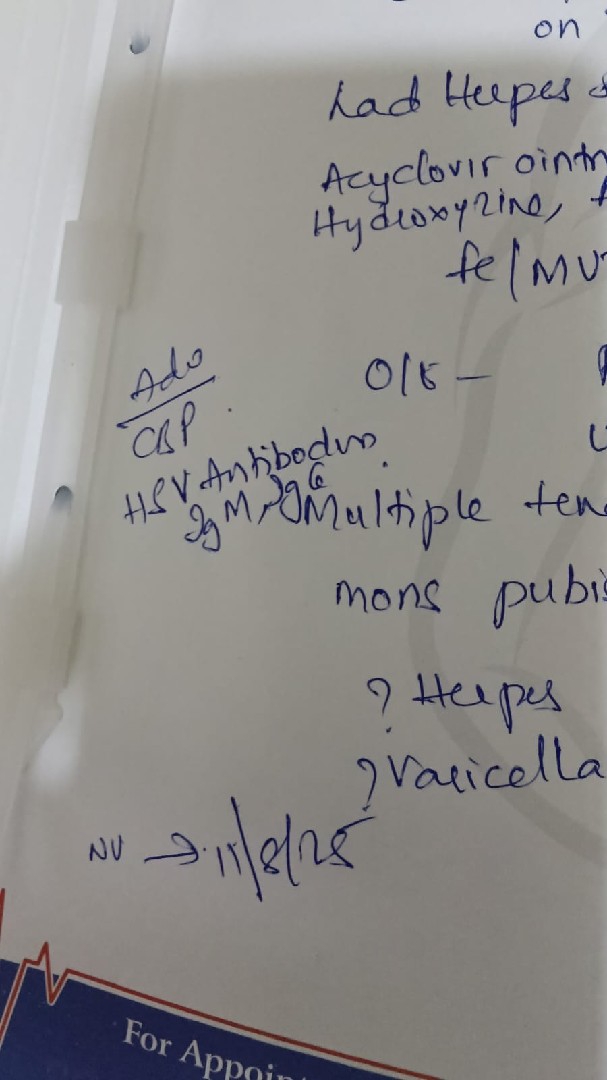 on
had Herpes
Acyclovir ointm
Hydroxyzine,
fe/MV
Ado
CBP
O/E -
HSV Antibodies
IgM, IgG
Multiple ten
mons pubis
? Herpes
? Varicella
NV → 11/8/25
For Appoint